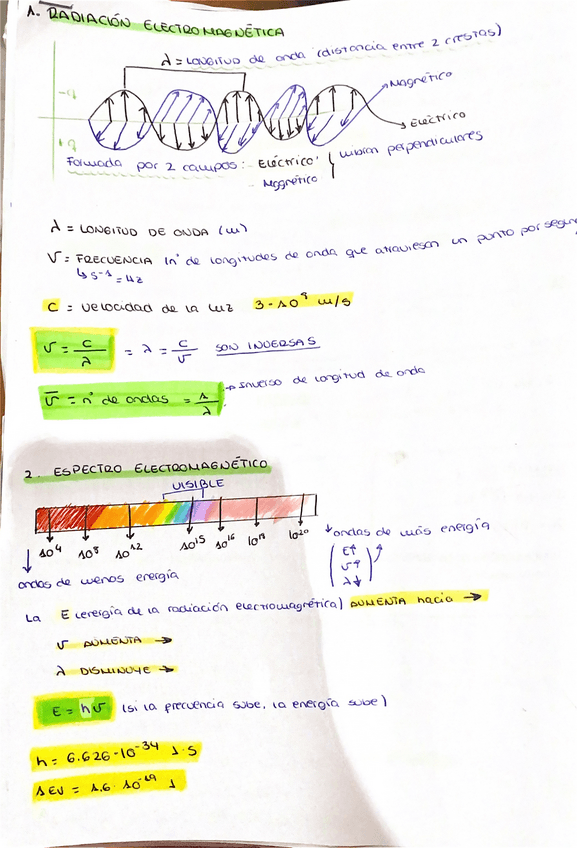 1. RADIACIÓN ELECTROMAGNÉTICA
λ = LONGITUD de onda (distancia entre 2 crestas)
Magnético
Eléctrico
Formada por 2 campos: - Eléctrico
- Magnético
vibran perpendiculares
λ = LONGITUD DE ONDA (m)
ν = FRECUENCIA (nº de longitudes de onda que atraviesan un punto por segun
↳ s-1 = Hz
C = velocidad de la luz 3·10⁸ m/s
ν = C/λ = λ = C/ν SON INVERSAS
ν̅ = nº de ondas = 1/λ → Inverso de longitud de onda
2. ESPECTRO ELECTROMAGNÉTICO
VISIBLE
10⁴ 10⁸ 10¹² 10¹⁵ 10¹⁶ 10¹⁸ 10²⁰
↓ ondas de más energía
(E↑
ν↑
λ↓)
ondas de menos energía
La E (energía de la radiación electromagnética) AUMENTA hacia →
ν AUMENTA →
λ DISMINUYE →
E = hν (si la frecuencia sube, la energía sube)
h = 6.626·10⁻³⁴ J·S
1 EV = 1.6·10⁻¹⁹ J